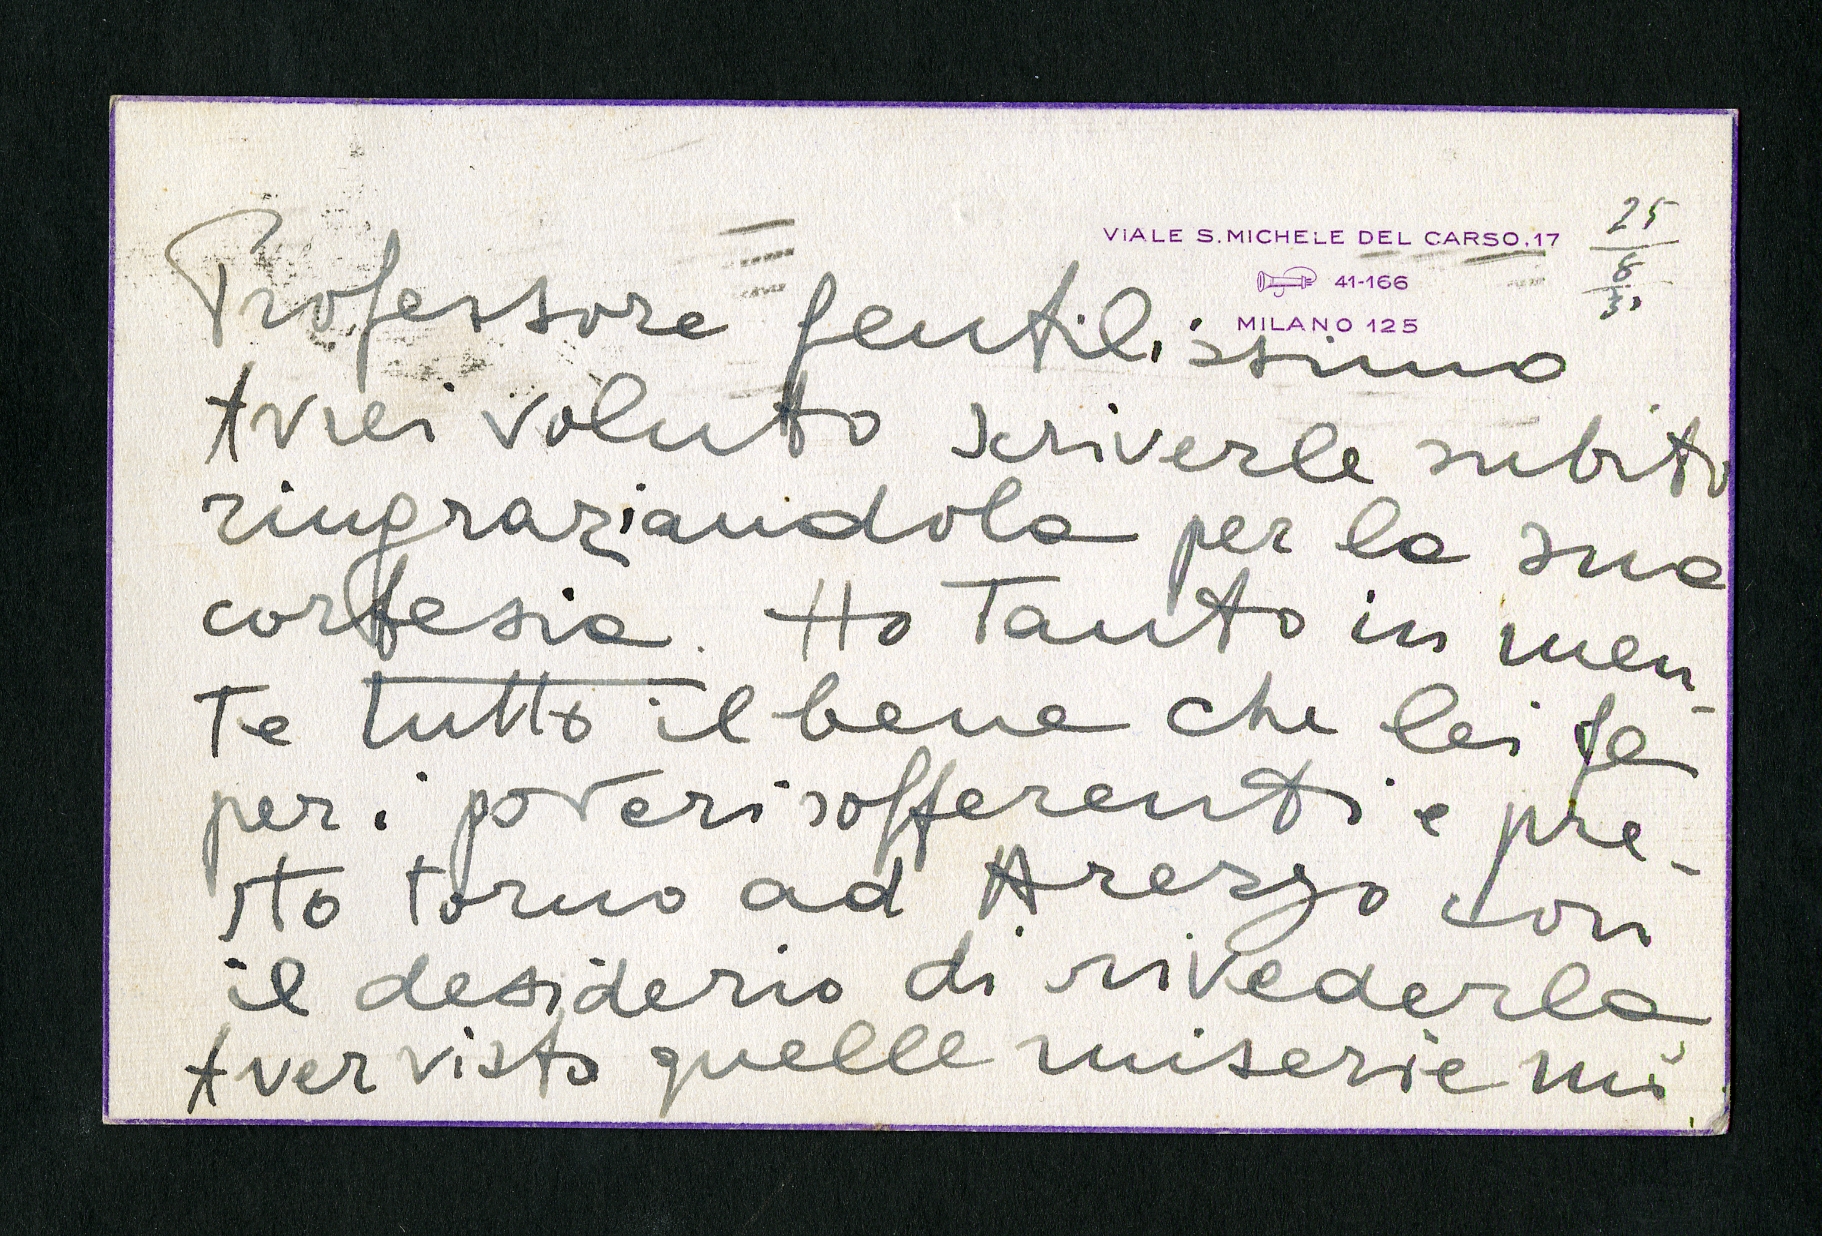 VIALE S. MICHELE DEL CARSO, 17
41-166
MILANO 125
25
8
Professore gentilissimo
Avrei voluto scriverle subito
ringraziandola per la sua
cortesia. Ho tanto in men-
te tutto il bene che lei fa
per i poveri sofferenti e pre-
sto torno ad Arezzo con
il desiderio di rivederla
Aver visto quelle miserie mi